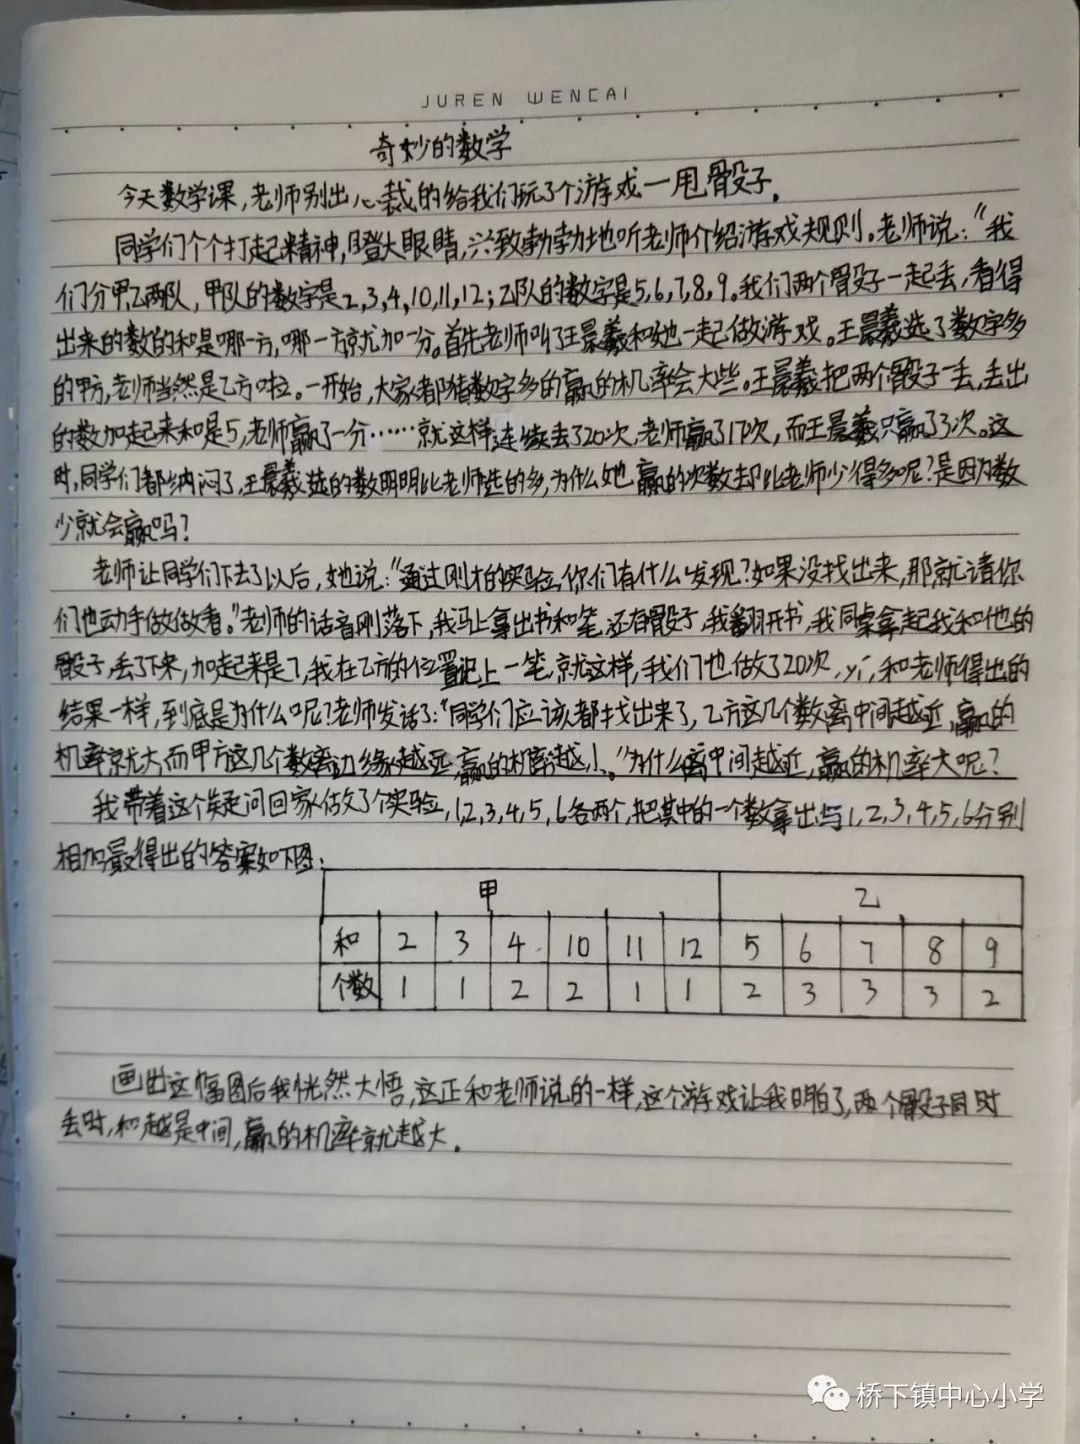 JUREN WENCAI
奇妙的数学
今天数学课,老师别出心裁的给我们玩了个游戏一甩骰子.
同学们个个打起精神,瞪大眼睛,兴致勃勃地听老师介绍游戏规则。老师说:“我
们分甲乙两队,甲队的数字是2,3,4,10,11,12;乙队的数字是5,6,7,8,9。我们两个骰子一起丢,看得
出来的数的和是哪一方,哪一方就加一分。首先老师叫了王景羲和她一起做游戏。王景羲选了数字多
的甲方,老师当然是乙方啦。一开始,大家都猜数字多的赢的机率会大些。王景羲把两个骰子一丢,丢出
的数加起来和是5,老师赢了一分……就这样连续丢了20次,老师赢了17次,而王景羲只赢了3次。这
时,同学们都纳闷了,王景羲选的数明明比老师选的多,为什么她赢的次数却比老师少得多呢?是因为数
少就会赢吗?
老师让同学们下去了以后,她说:“通过刚才的实验,你们有什么发现?如果没找出来,那就请你
们也动手做做看。”老师的话音刚落下,我马上拿出书和笔,还有骰子,我翻开书,我同桌拿起我和他的
骰子,丢了下来,加起来是7,我在乙方的位置记上一笔,就这样,我们也做了20次,yí,和老师得出的
结果一样,到底是为什么呢?老师发话了:“同学们应该都找出来了,乙方这几个数离中间越近,赢的
机率就大,而甲方这几个数离边缘越近,赢的机率越小。”为什么离中间越近,赢的机率大呢?
我带着这个疑问回家做了个实验,1,2,3,4,5,6各两个,把其中的一个数拿出与1,2,3,4,5,6分别
相加最得出的答案如下图:
甲 乙
和 2 3 4 10 11 12 5 6 7 8 9
个数 1 1 2 2 1 1 2 3 3 3 2
画出这幅图后我恍然大悟,这正和老师说的一样,这个游戏让我明白了,两个骰子同时
丢时,和越是中间,赢的机率就越大.
桥下镇中心小学